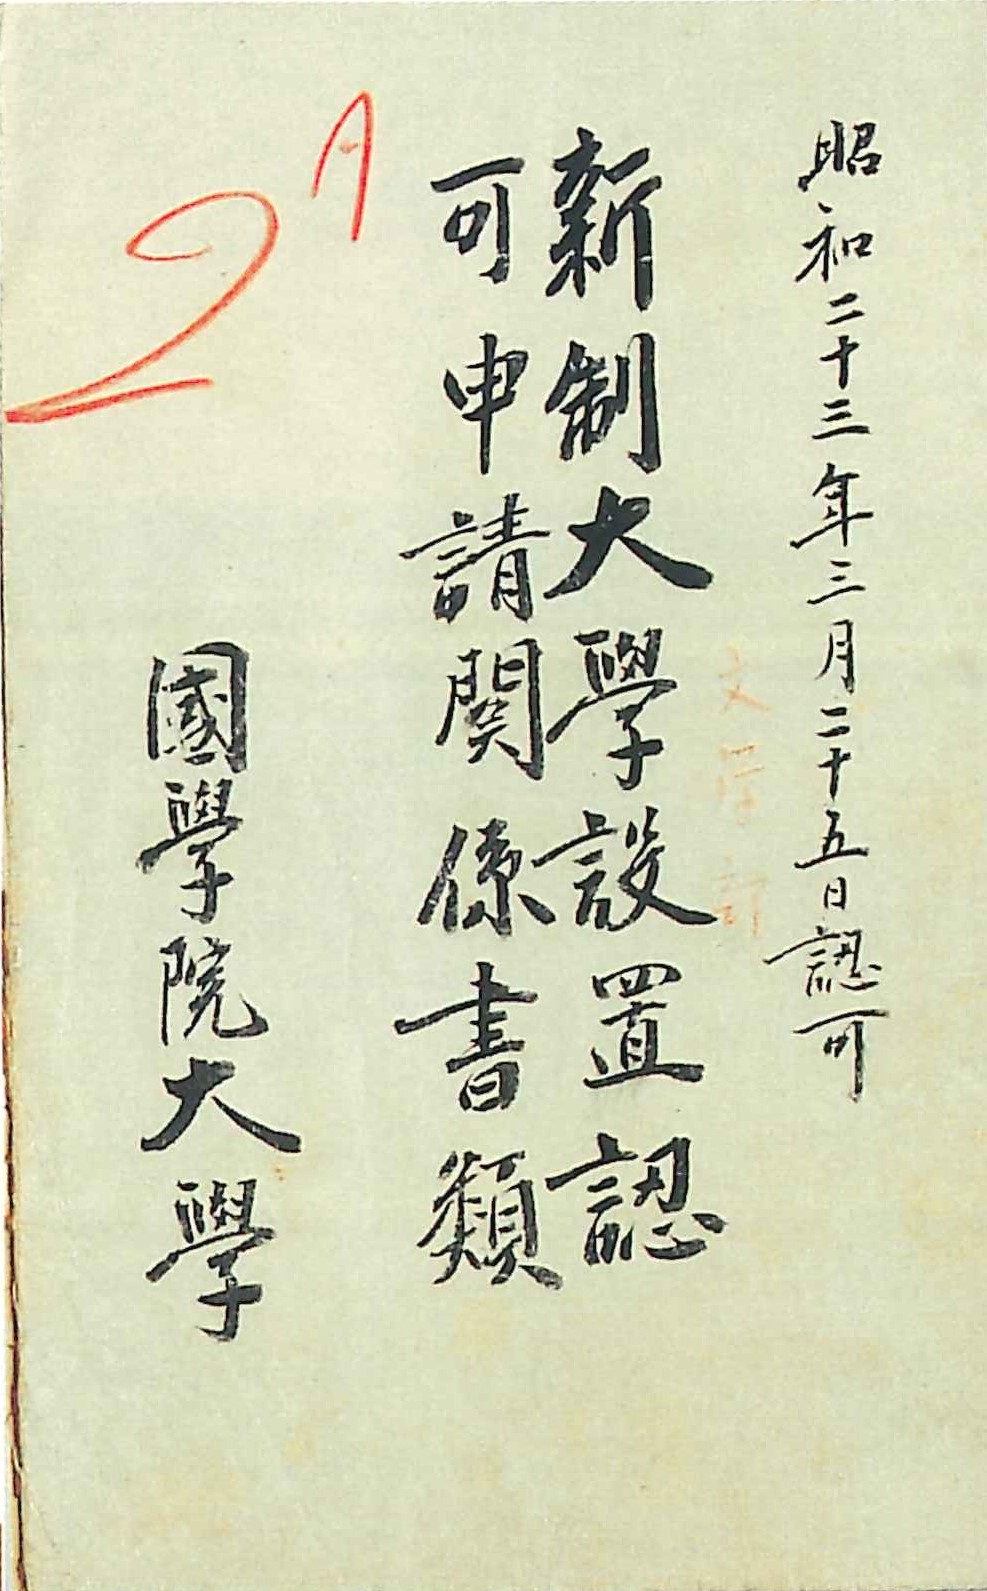 昭和二十三年三月二十五日認可
文学部
新制大學設置認
可申請関係書類
國學院大學
A
2